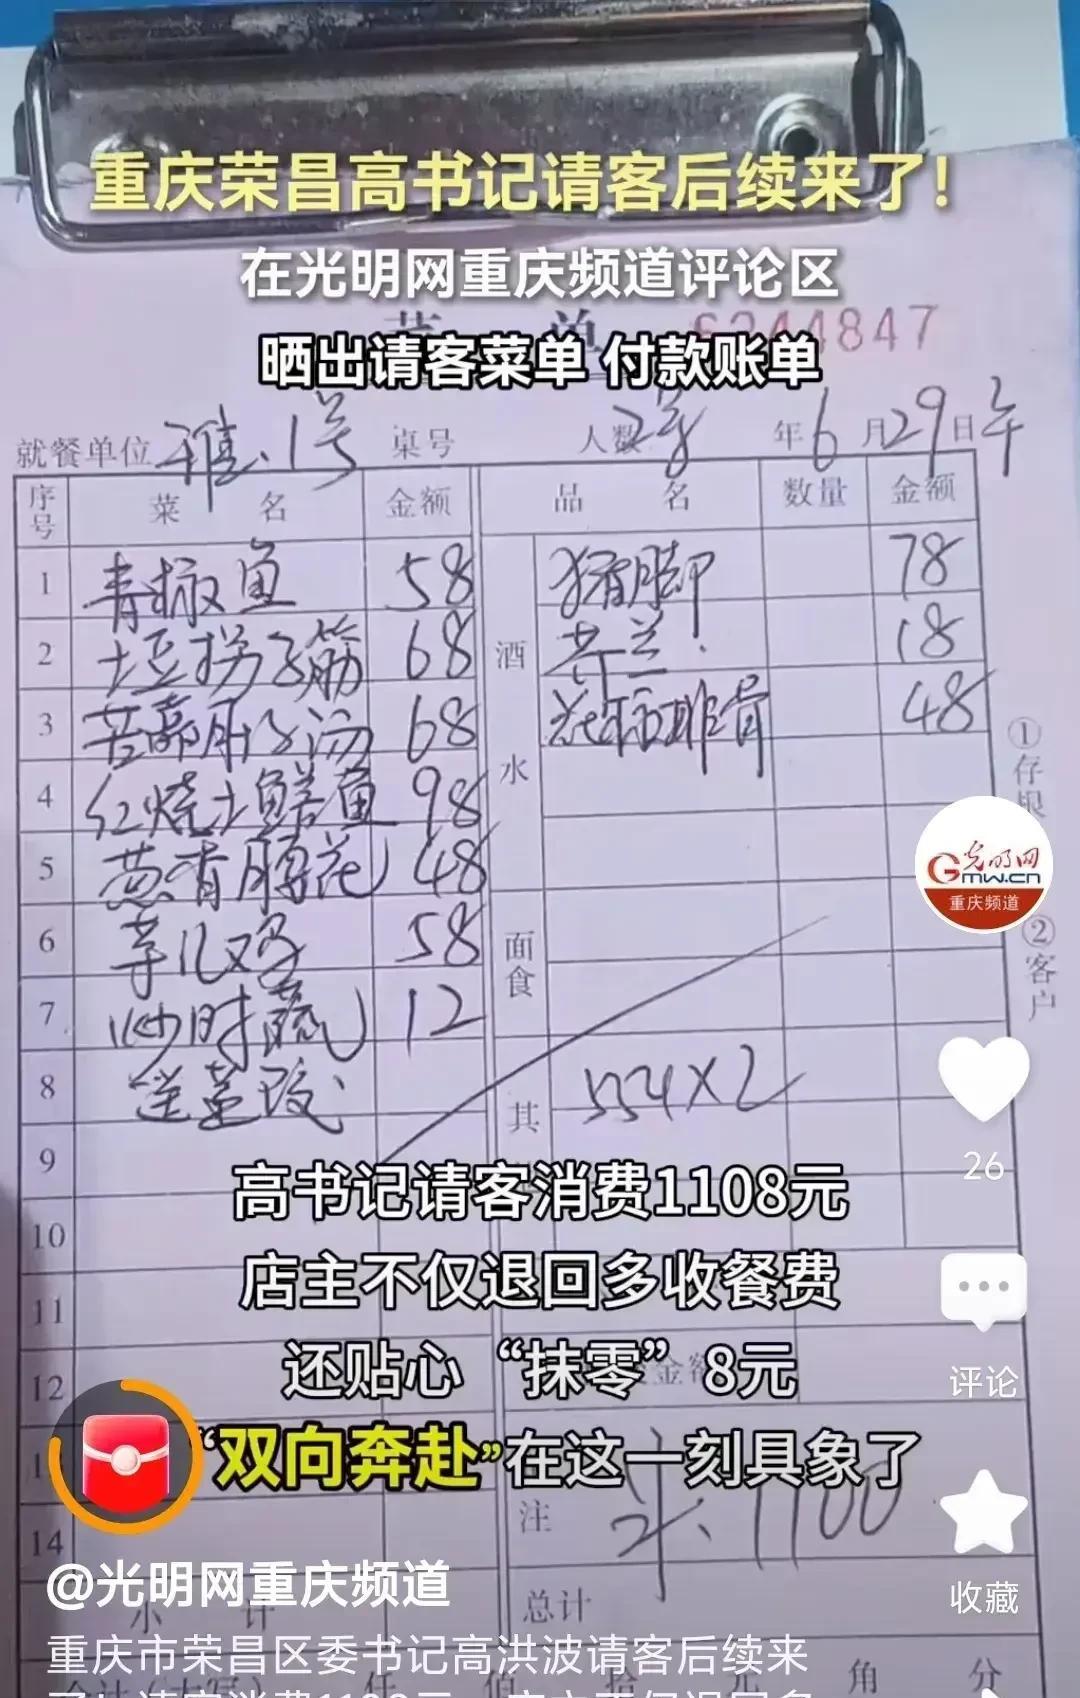 重庆荣昌高书记请客后续来了!
在光明网重庆频道评论区
晒出请客菜单 付款账单
4847
就餐单位 雅.1号 桌号 人数 2桌 年6月29日午
序号 菜 名 金额 品 名 数量 金额
1 青椒鱼 58 酒水 猪脚 78
2 土豆拐子筋 68 芥兰. 18
3 苦藠肝子汤 68 花椒排骨 48
4 红烧土鳝鱼 98
5 葱香腰花 48
6 芋儿鸡 58 面食
7 炒时蔬 12
8 其 554×2
9
高书记请客消费1108元
10
店主不仅退回多收餐费
11
还贴心“抹零”8元
12 金额
“双向奔赴”在这一刻具象了
13
14 注 1100
①存根
②客户
光明网
GMW.CN
重庆频道
26
评论
收藏
@光明网重庆频道
小 计 总计
重庆市荣昌区委书记高洪波请客后续来
仟 佰 拾 元 角 分